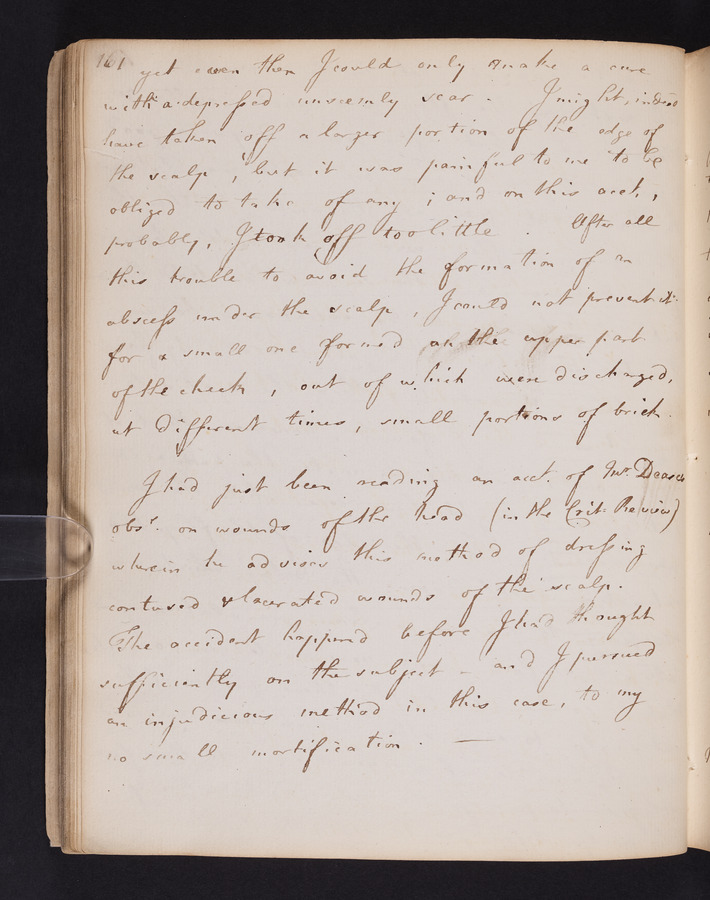 161
yet even then I could only make a cure
with a depressed unseemly scar. I might, indeed
have taken off a larger portion of the edge of
the scalp; but it was painful to me to be
obliged to take of any; and on this acct,
probably, I took off too little. After all
this trouble to avoid the formation of an
abscess under the scalp, I could not prevent it:
for a small one formed at the upper part
of the cheek, out of which were discharged,
at different times, small portions of brick.
I had just been reading an acct. of Mr. Deases
obsr. on wounds of the head (in the Crit: Review)
wherein he advises this method of dressing
contused & lacerated wounds of the scalp.
The accident happend before I had thought
sufficiently on the subject – and I pursued
an injudicious method in this case, to my
no small mortification. —